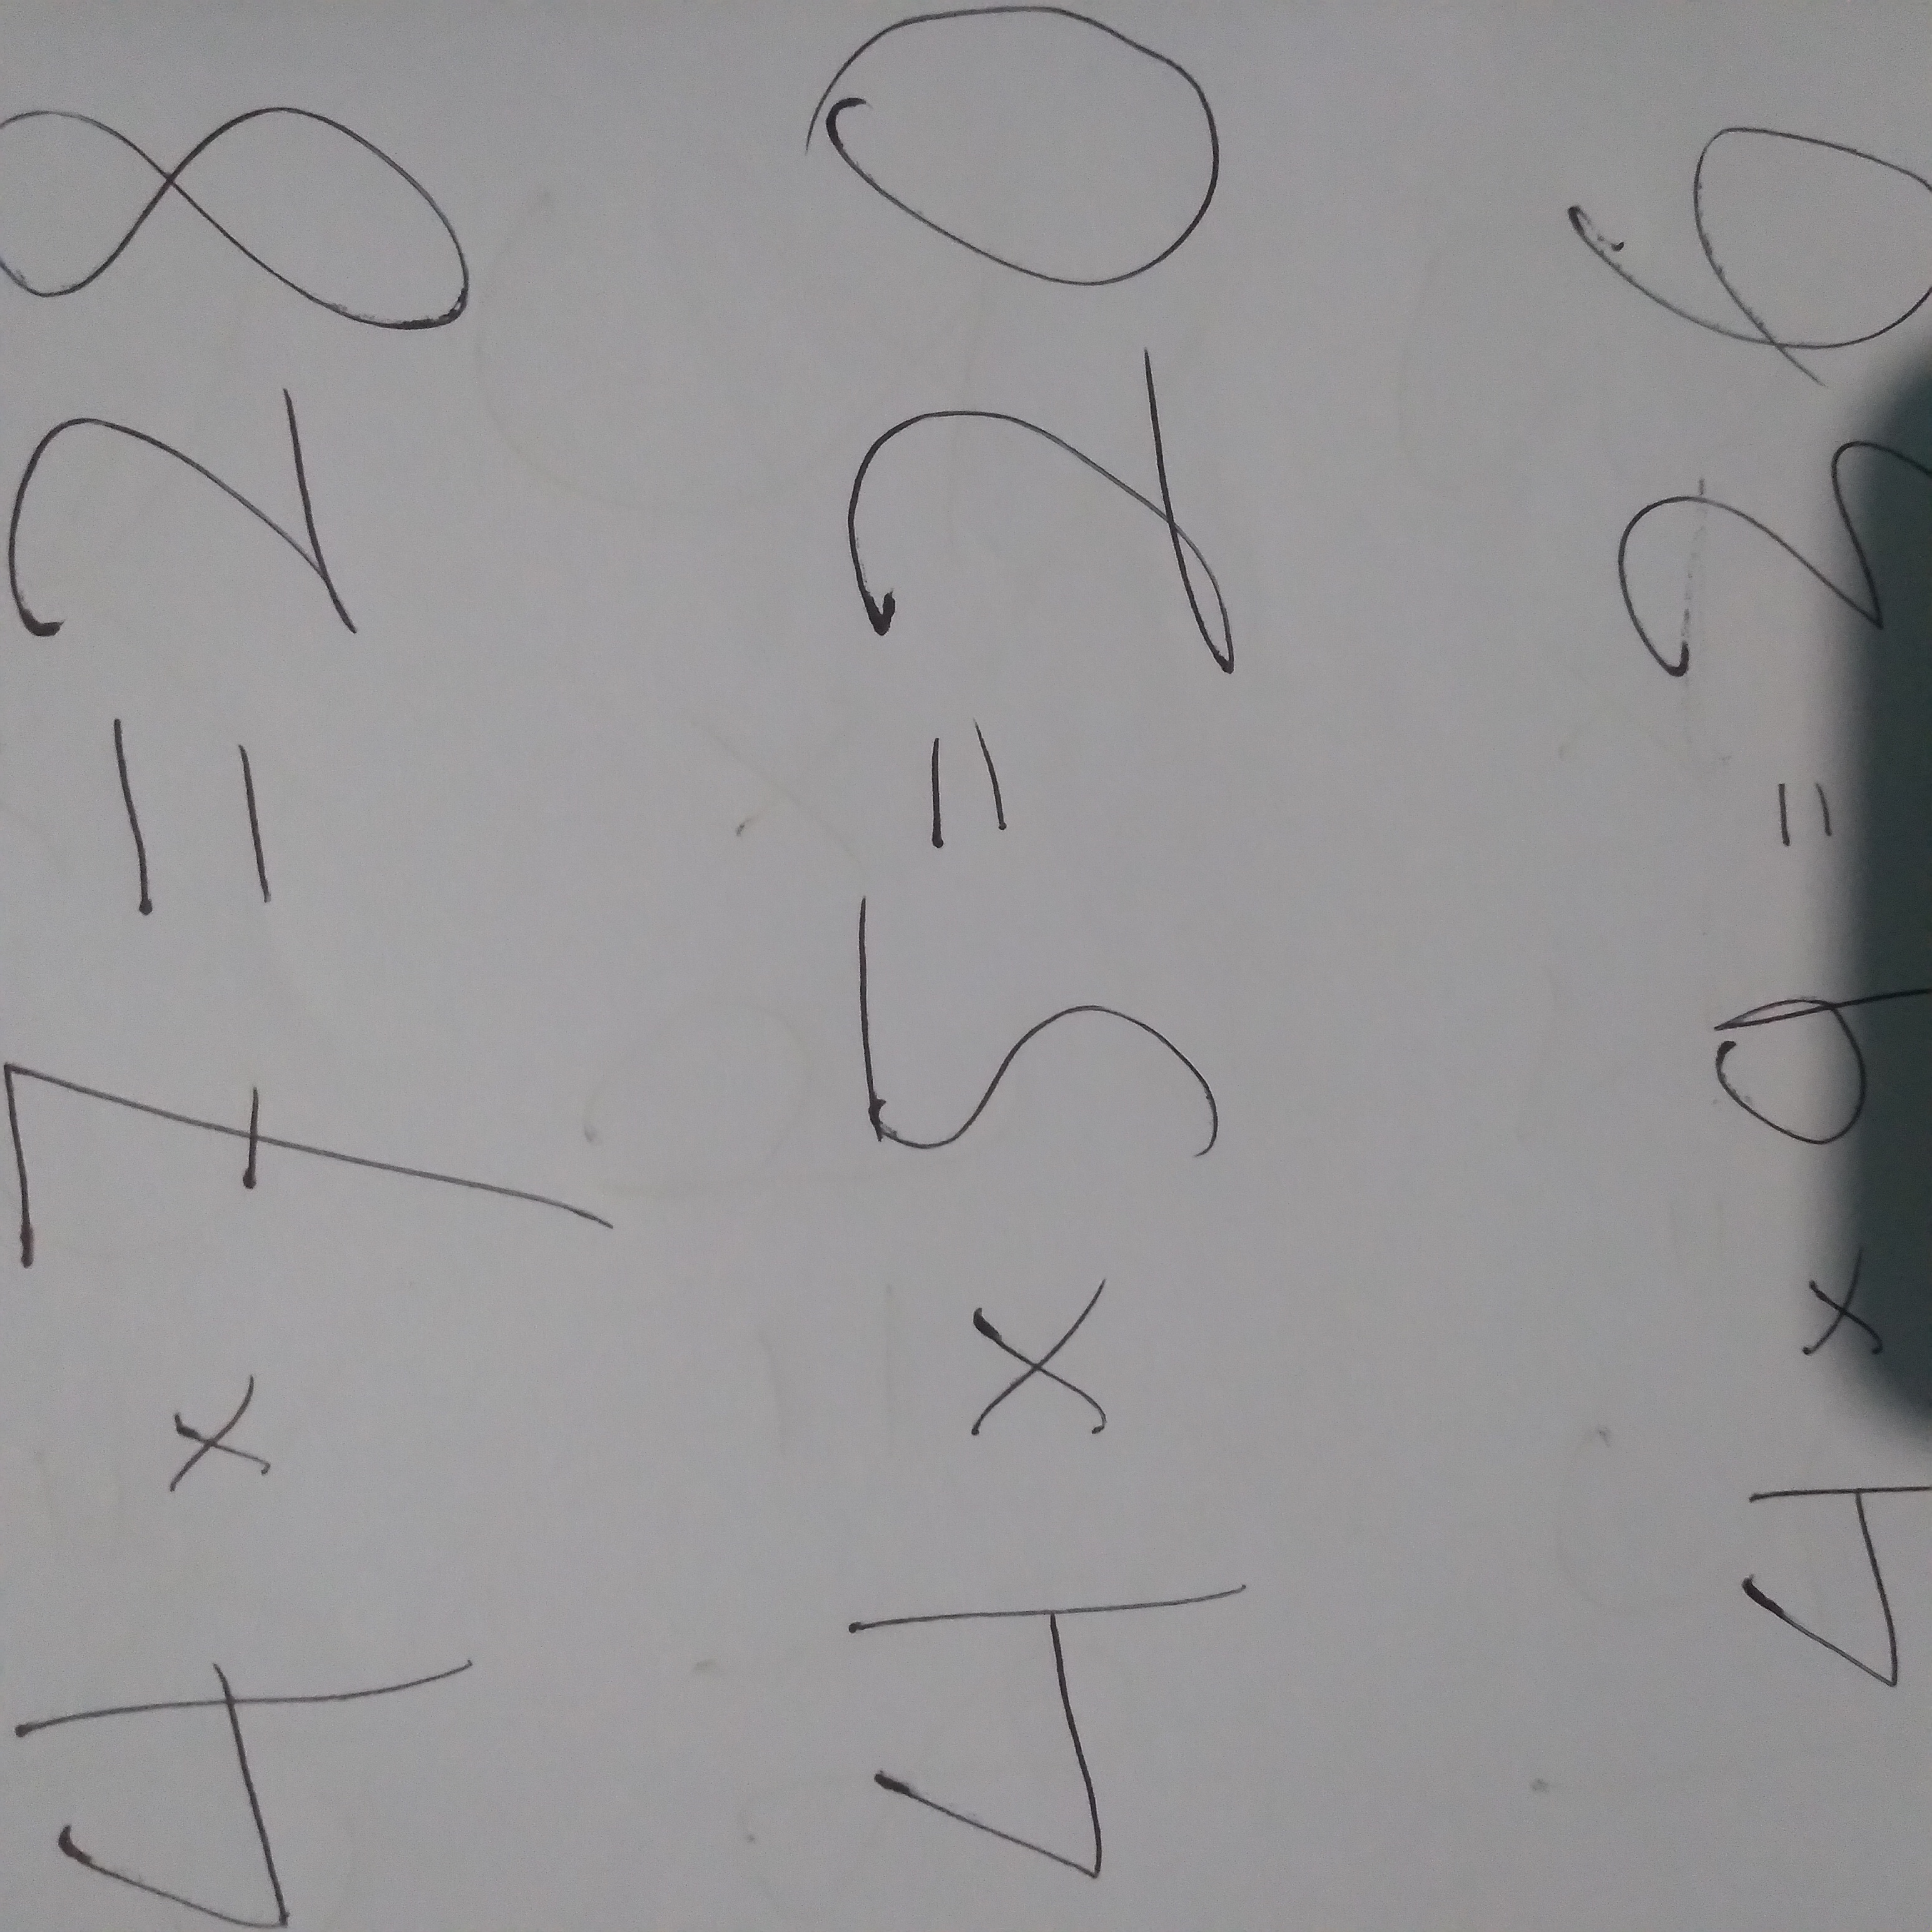 4 x 7 = 28
4 x 5 = 20
4 x 9 = 36